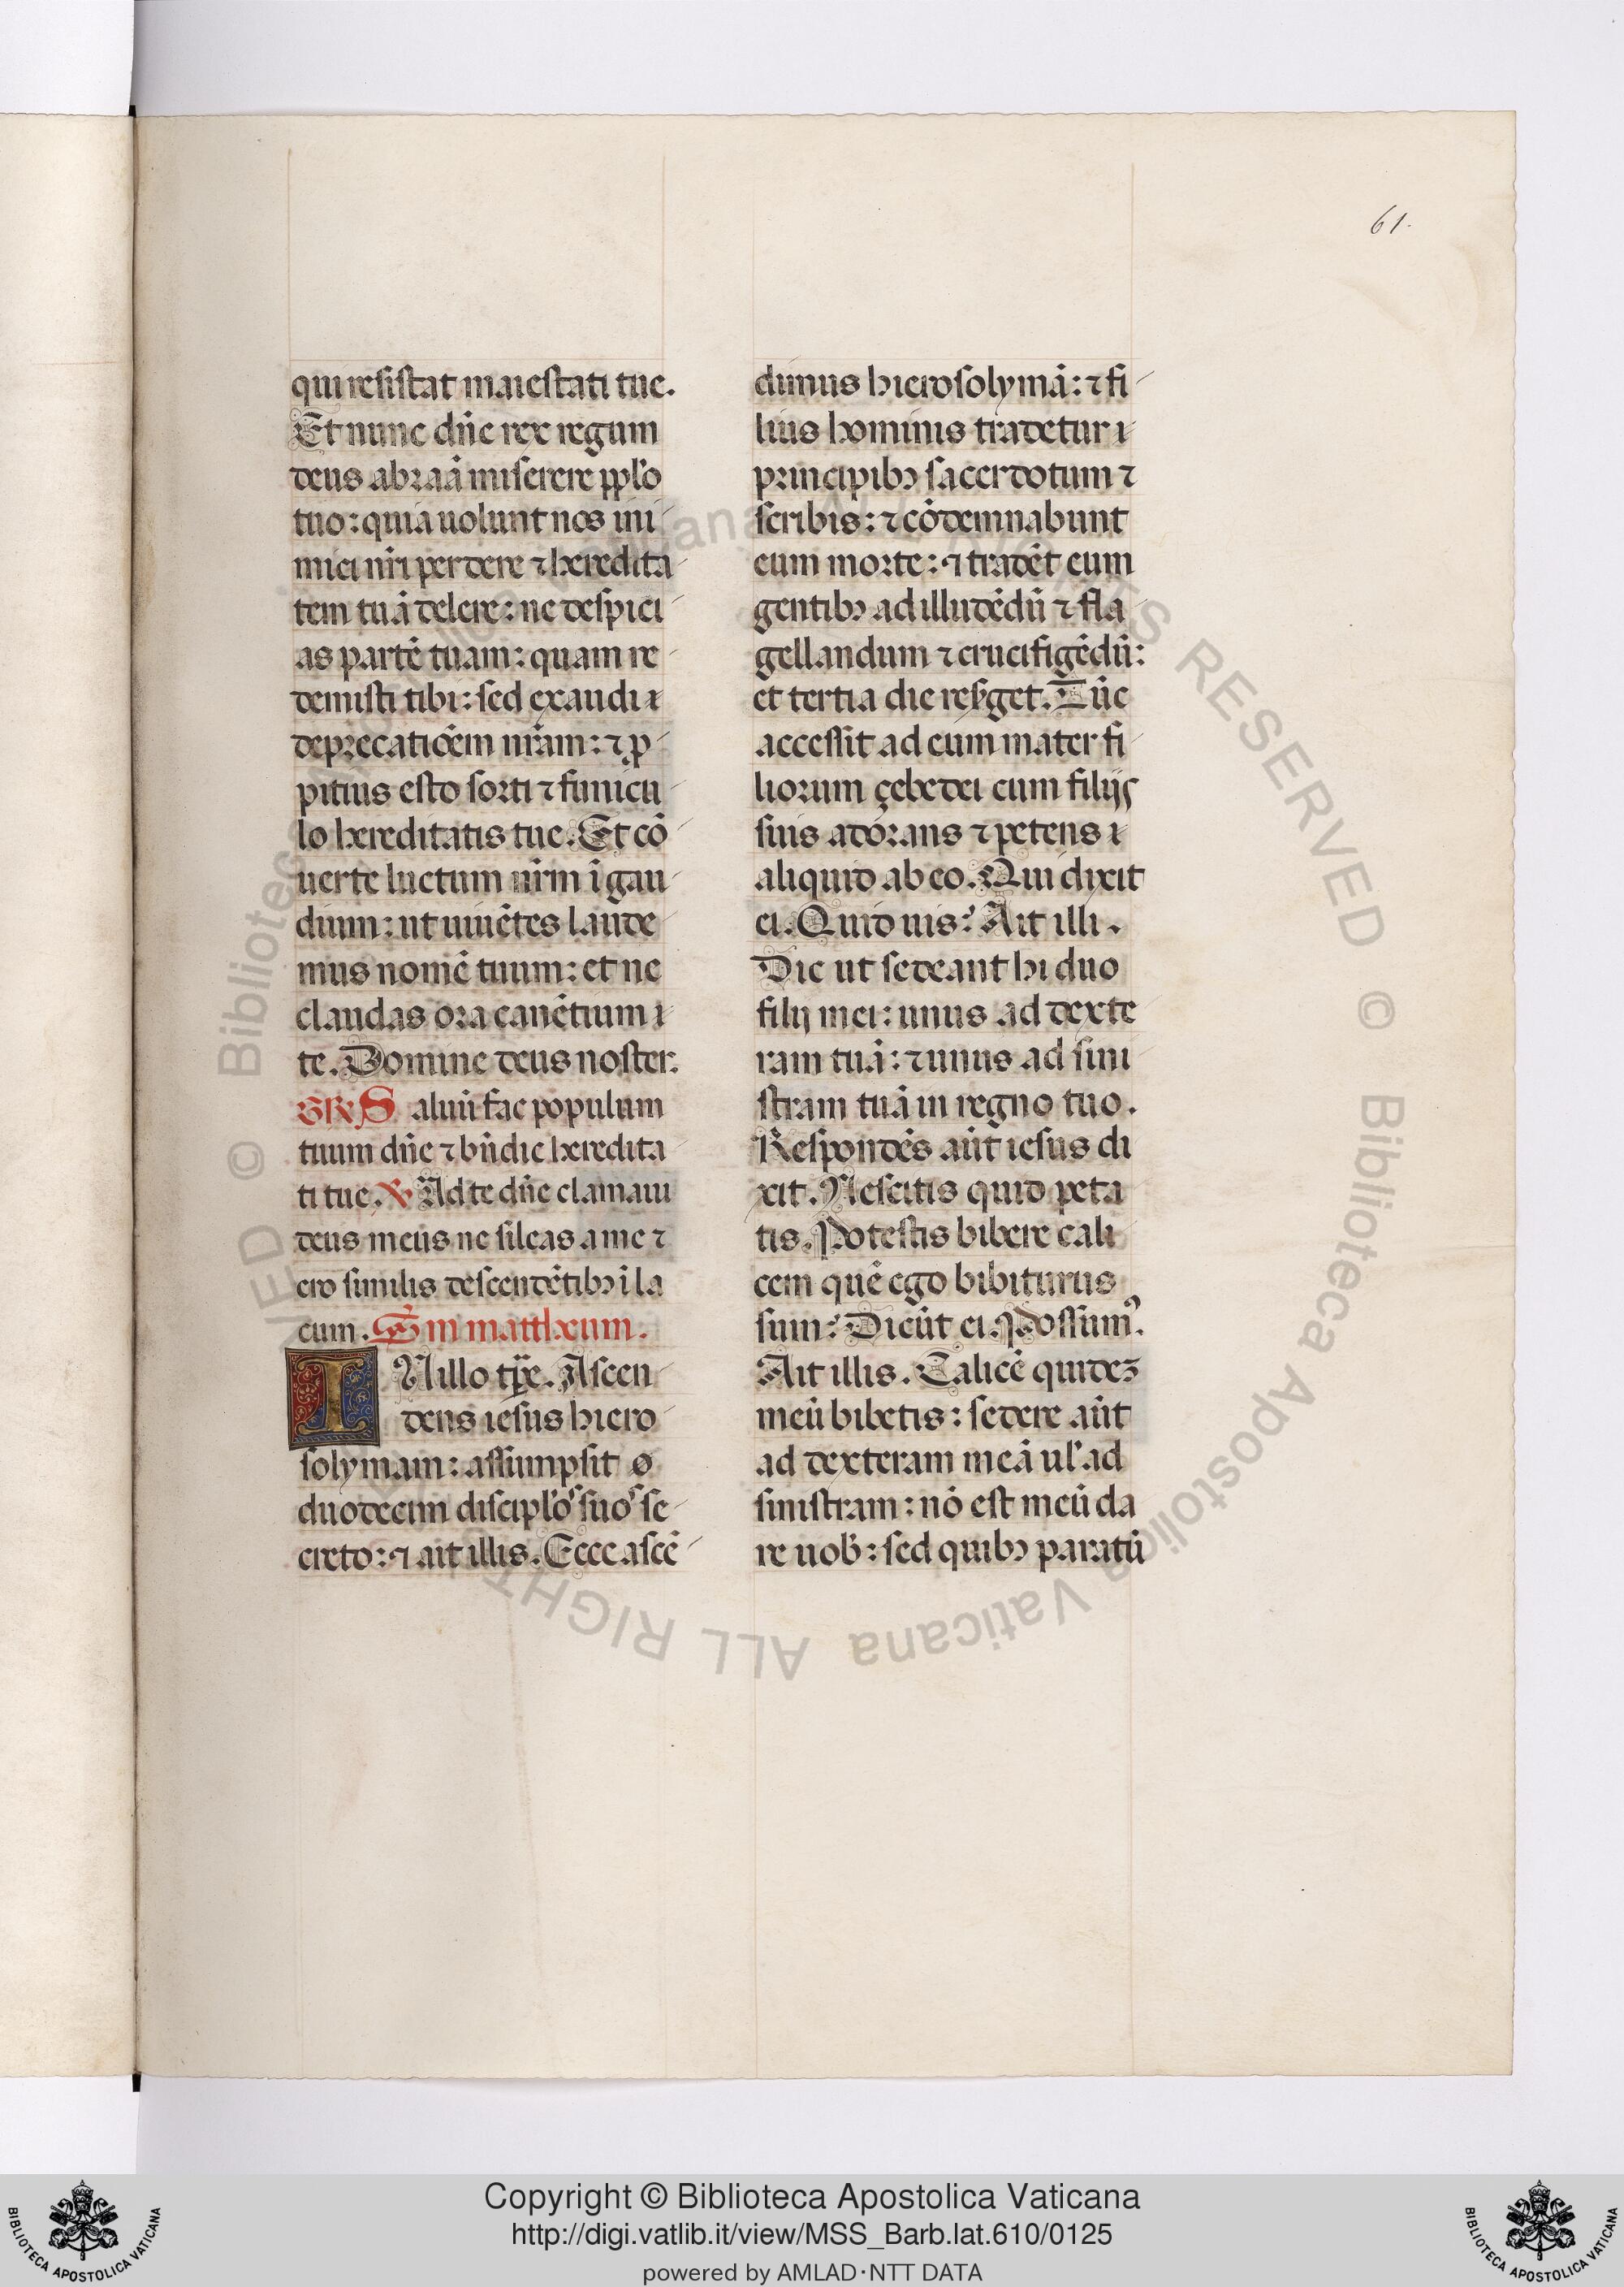 61.
qui resistat maiestati tue.
Et nunc dñe rex regum
deus abraã miserere pplo
tuo: quia uolunt nos ini
mici nr̃i perdere ⁊ heredita
tem tuã delere: ne despici
as partẽ tuam: quam re
demisti tibi: sed exaudi
deprecatiõem nr̃am: ⁊ ꝓ
pitius esto sorti ⁊ funicu
lo hereditatis tue. Et cõ
uerte luctum nr̃m ĩ gau
dium: ut uiuẽtes laude
mus nomẽ tuum: et ne
claudas ora canẽtium
te. Domine deus noster.
GR̃ Saluũ fac populum
tuum dñe ⁊ bñdic heredita
ti tue. ℣ Ad te dñe clamaui
deus meus ne sileas a me ⁊
ero similis descendẽtibꝫ ĩ la
cum. Sm̃ mattheum.
IN illo tp̃e. Ascen
dens iesus hiero
solymam: assumpsit
duodecim disciplos suos se
creto: ⁊ ait illis. Ecce ascẽ
dimus hierosolymã: ⁊ fi
lius hominis tradetur
principibꝫ sacerdotum ⁊
scribis: ⁊ cõdemnabunt
eum morte: ⁊ tradẽt eum
gentibꝫ ad illudẽdũ ⁊ fla
gellandum ⁊ crucifigẽdũ:
et tertia die resꝰget. Tũc
accessit ad eum mater fi
liorum çebedei cum filijs
suis adorans ⁊ petens
aliquid ab eo. Qui dixit
ei. Quid uis? Ait illi.
Dic ut sedeant hi duo
filij mei: unus ad dexte
ram tuã: ⁊ unus ad sini
stram tuã in regno tuo.
Respondẽs aũt iesus di
xit. Nescitis quid peta
tis. Potestis bibere cali
cem quẽ ego bibiturus
sum? Dicũt ei. Possumꝰ.
Ait illis. Calicẽ quideꝫ
meũ bibetis: sedere aũt
ad dexteram meã ul' ad
sinistram: nõ est meũ da
re uob': sed quibꝫ paratũ
© Biblioteca Apostolica Vaticana ALL RIGHTS RESERVED
Copyright © Biblioteca Apostolica Vaticana
http://digi.vatlib.it/view/MSS_Barb.lat.610/0125
powered by AMLAD·NTT DATA
BIBLIOTECA APOSTOLICA VATICANA
BIBLIOTECA APOSTOLICA VATICANA